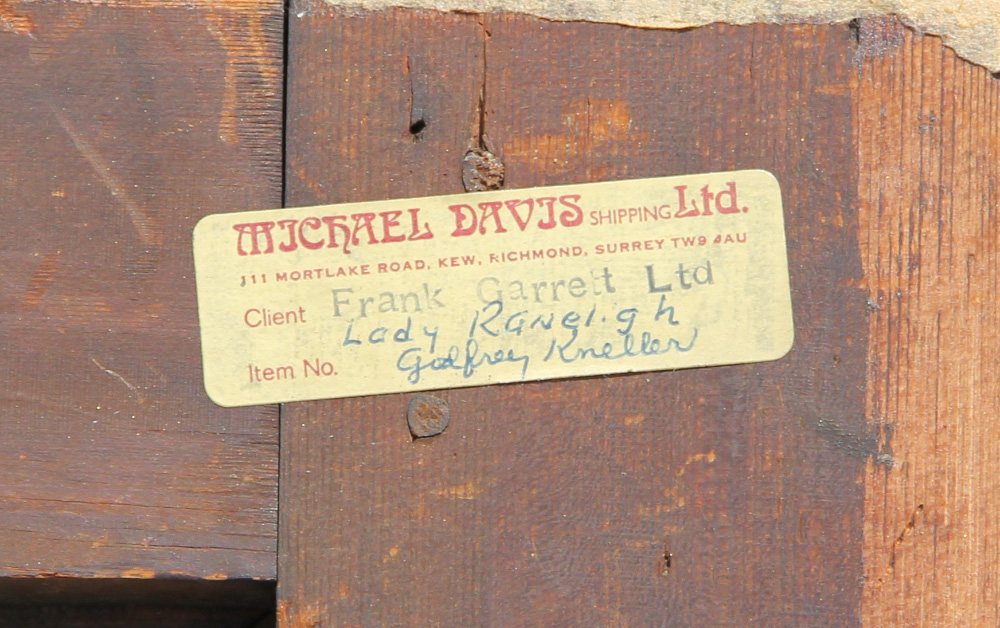 MICHAEL DAVIS SHIPPING Ltd.
111 MORTLAKE ROAD, KEW, RICHMOND, SURREY TW9 4AU
Client Frank Garrett Ltd
Lady Raneligh
Item No. Godfrey Kneller